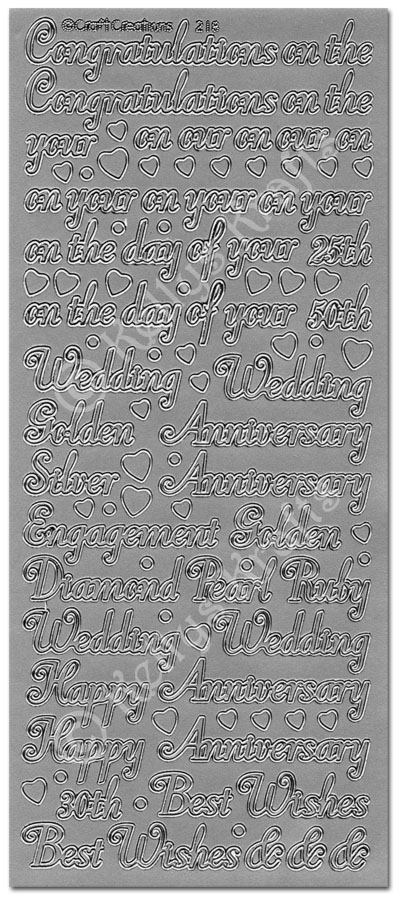 ©Craft Creations 218
Congratulations on the
Congratulations on the
your on our on our on
on your on your on your
on the day of your 25th
on the day of your 50th
Wedding Wedding
Golden Anniversary
Silver Anniversary
Engagement Golden
Diamond Pearl Ruby
Wedding Wedding
Happy Anniversary
Happy Anniversary
30th Best Wishes
Best Wishes & & &